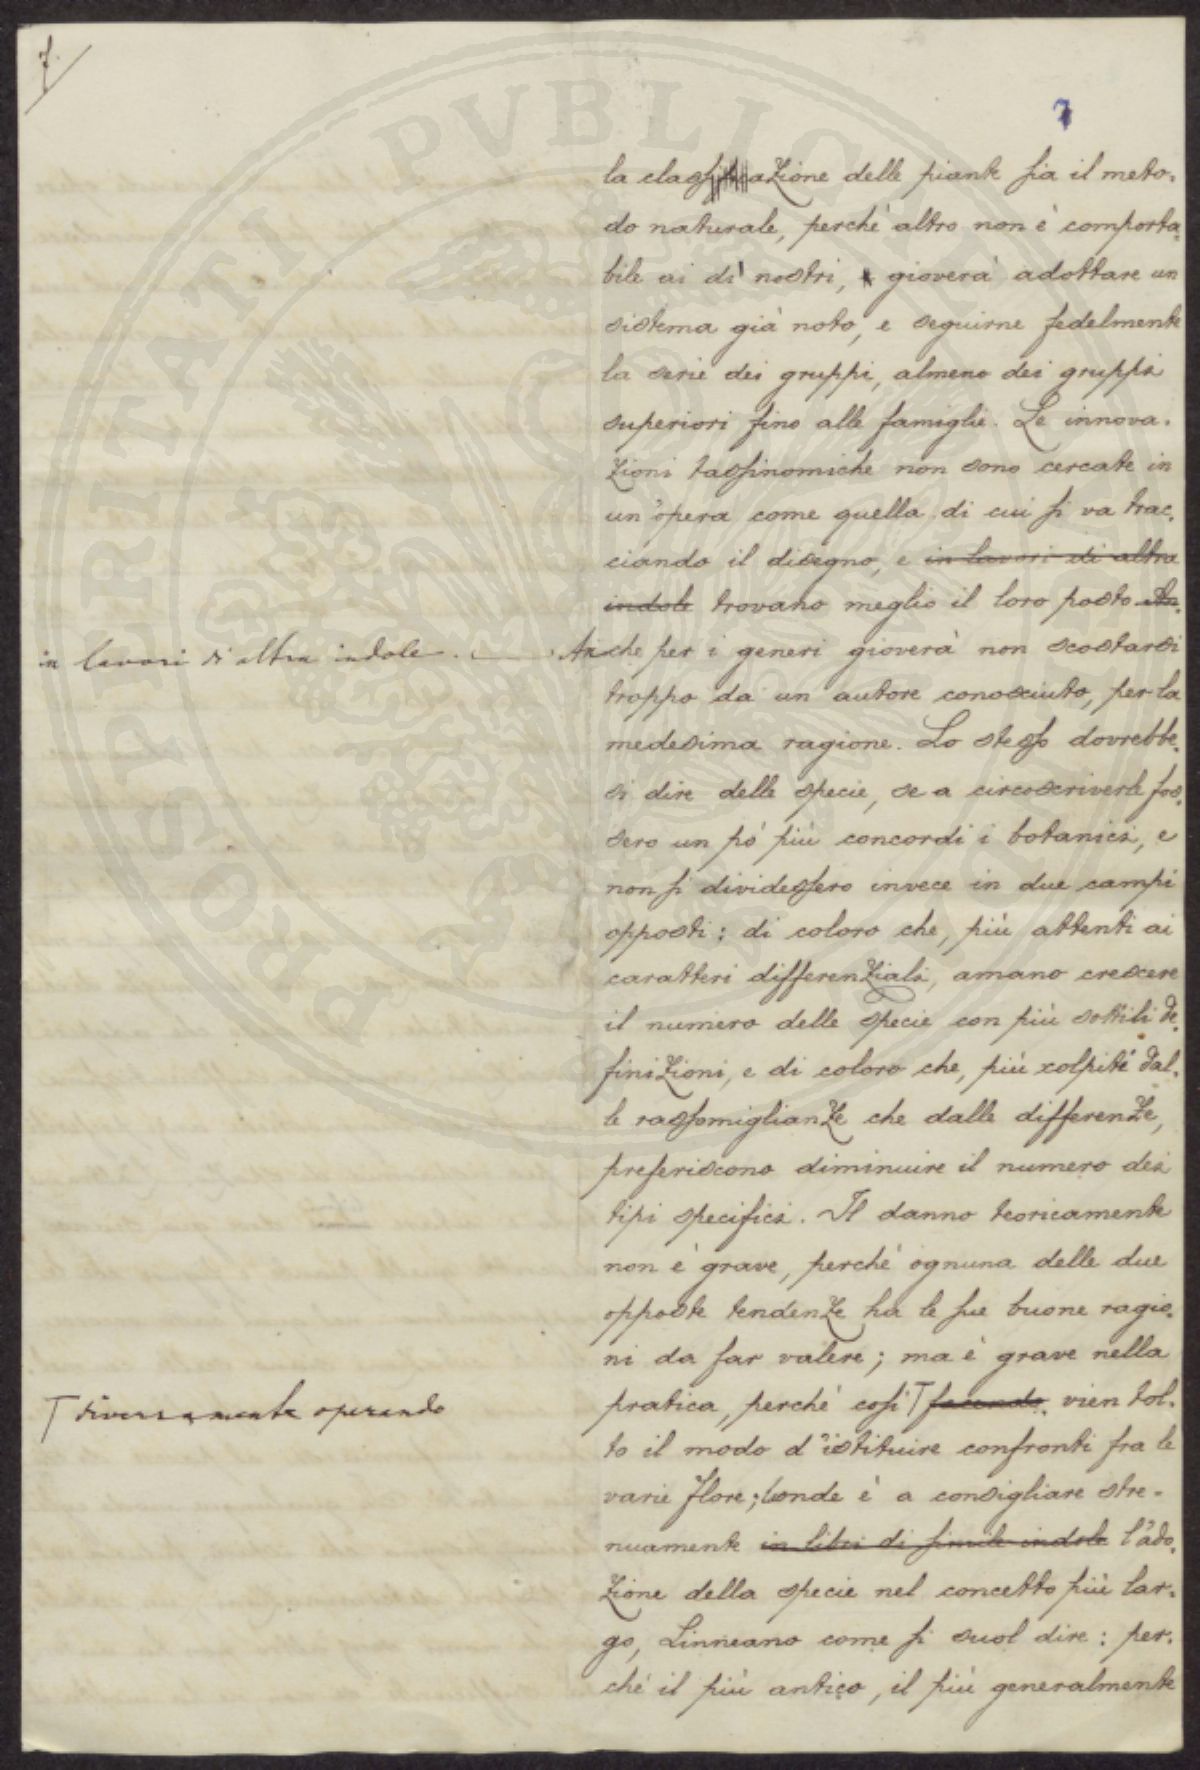 7.
7
la classificazione delle piante sia il meto-
do naturale, perchè altro non è comporta-
bile ai dì nostri, gioverà adottare un
sistema già noto, e seguirne fedelmente
la serie dei gruppi, almeno dei gruppi
superiori fino alle famiglie. Le innova-
zioni tassinomiche non sono cercate in
un'opera come quella di cui si va trac-
ciando il disegno, e in lavori di altra
indole trovano meglio il loro posto. An-
in lavori di altra indole. An che per i generi gioverà non scostarsi
troppo da un autore conosciuto, per la
medesima ragione. Lo stesso dovrebbe-
si dire delle specie, se a circoscriverle fos-
sero un pò più concordi i botanici, e
non si dividessero invece in due campi
opposti: di coloro che, più attenti ai
caratteri differenziali, amano crescere
il numero delle specie con più sottili de-
finizioni, e di coloro che, più colpiti dal-
le rassomiglianze che dalle differenze,
preferiscono diminuire il numero dei
tipi specifici. Il danno teoricamente
non è grave, perchè ognuna delle due
opposte tendenze ha le sue buone ragio-
ni da far valere; ma è grave nella
T diversamente operando
pratica, perchè così T facendo, vien tol-
to il modo d'istituire confronti fra le
varie flore; onde è a consigliare stre-
nuamente in libri di simile indole l'ado-
zione della specie nel concetto più lar-
go, Linneano come si suol dire: per-
chè il più antico, il più generalmente
PROSPERITATI PVBLICAE